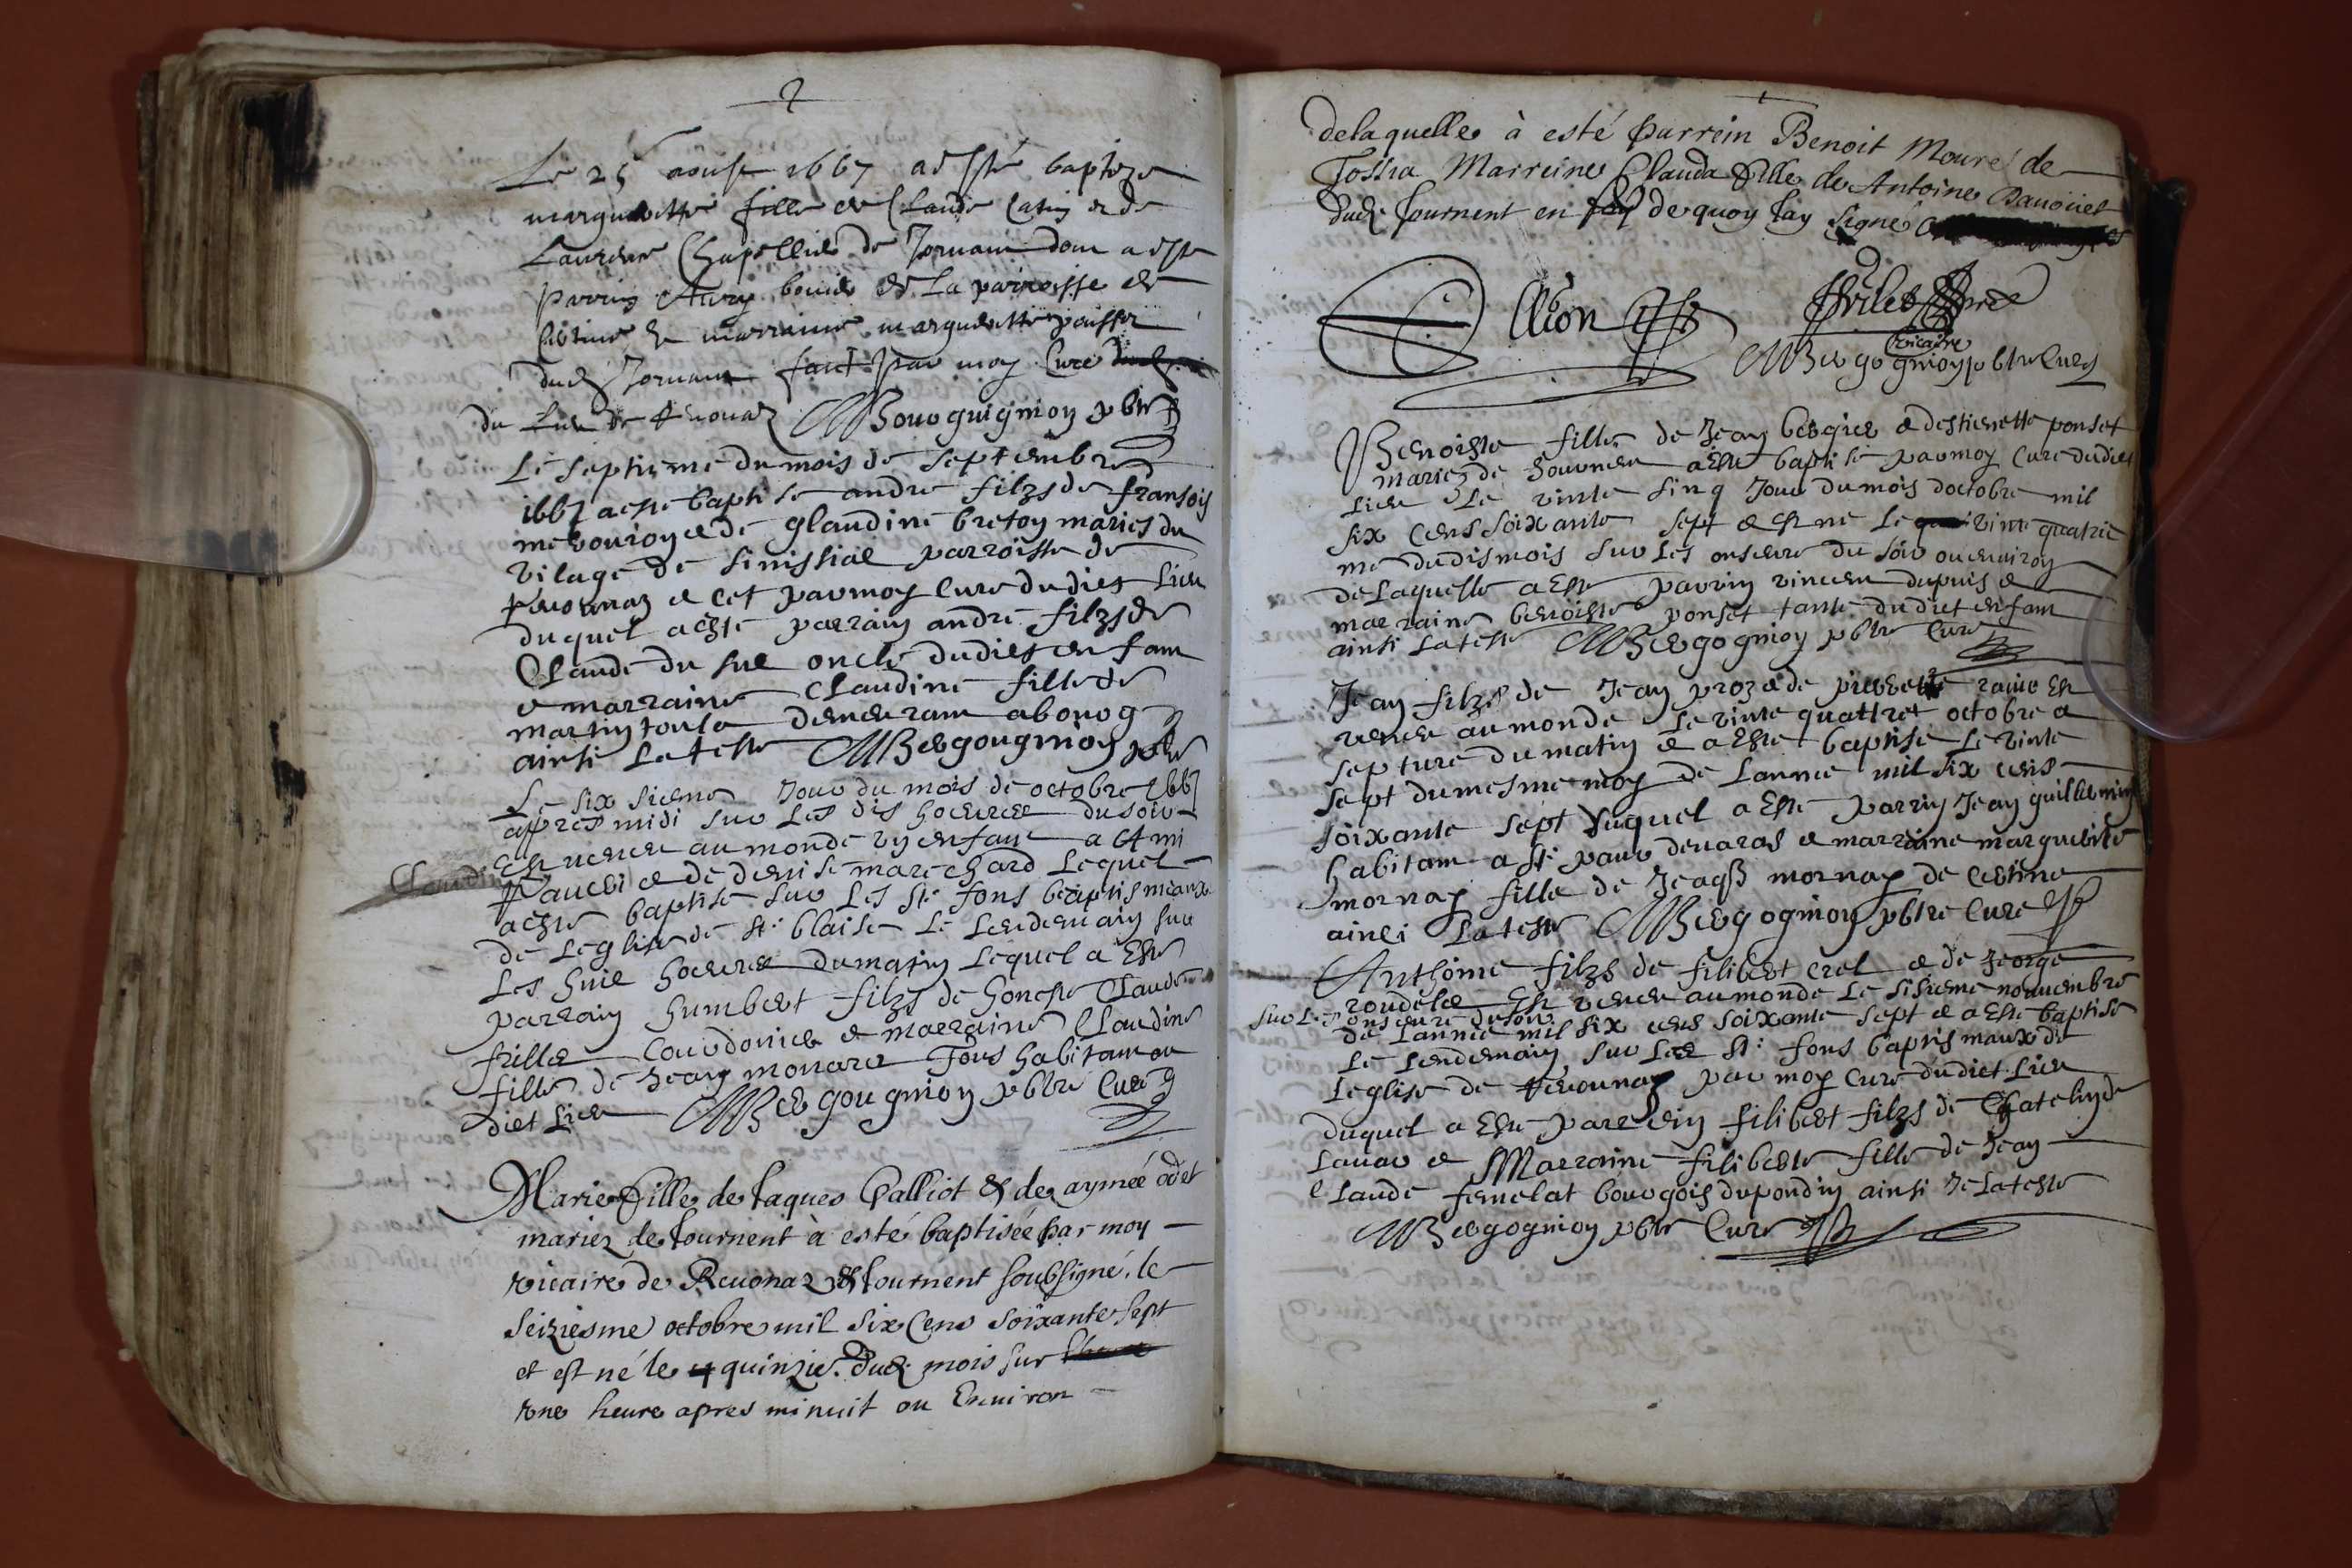 2
Le 25 aoust 1667 a esté baptize
margueritte fille de Claude Catin et de
Laurence Chapellie de Jornam dont a este
Parrin bouie de La parroisse de
et marraine margueritte
dud Jornam faict Par moy Curé
du Lieu de Reuonaz MBourguignion pbtr
Le septieme du mois de septembre
1667 a este baptise andre filz de fransois
et de glaudine bretoy maries du
vilage de sinissiat parroisse de
Reuonnaz et cet par moy Cure dudiet Lieu
duquel a este parrain andre filz de
Claude du sue oncle dudiet enfam
e marraine Claudine fille de
martin toula demeuram a bourg
ainsi Lateste MBergougnioy pbtr
Le six sieme Jour du mois de octobre 1667
appres midi sur Les dis hoeures du soir
Claudine
Est venue au monde vy enfant a
et de denise marechard Lequel
a este baptise sur Les st: fons baptismeaux
de Leglise de st: blaise Le Lendemain sur
Les huit hoeures du matin Lequel a Este
parrain humbert filz de honeste Claude
frilla Courdonier e marraine Claudine
fille de Jean monara Tous habitam au
diet Lieu MBergougniony pbtre Curé
Marie fille de Jaques Palliot & de aymeé odet
mariez de Journent à esté baptisée par moy
vicaire de Reuonaz & Journent soubsigné. le
seiziesme octobre mil six Cens soixante sept
et est né le quinzie. dud. mois sur
vne heure apres minuit ou Enuiron
1
delaquelle à esté Parrein Benoit Mouré de
Tossia Marreine Clauda fille de Antoine Banoüet
dud Journent en foy de quoy Jay signé
vicaire
MBergogniony pbtr Cury
Benoiste fille de Jean bergier e destienette ponset
maries de Journen a Este baptise par moy Cure dudiet
Lieu Le vinte sinq Jour du mois doctobre mil
six Cens soixante sept e Est ne Le vinte quatrie
me dudis mois sur Les onseure du soir ou enuiron
de Laquelle a Este parrin vincen dupuis e
marraine benoiste ponset tante dudiet enfam
ainsi Lateste MBergogniony pbtr Cure
Jean filz de Jean proz e de pierrette raiur Est
venu au monde Le vinte quattre octobre a
septure du matin e a Este baptise Le vinte
sept du mesme moy de Lannee mil six cens
soixante sept duquel a Este parrin Jean guillemin
habitam a st: paur deuaras e marraine marguerite
mornay fille de Jeaqs mornay de Certine
ainsi Lateste MBergogniony pbtre Cure
Anthoine filzs de filibert crel e de Jeorge
roudelee Est venu au monde Le sisieme nouuembre
sur Les onseure du soir
de Lannee mil six cens soixante sept e a Este baptise
Le Lendemain sur Les st: fons baptismaux de
Leglise de Reuounaz par moy Cure dudiet Lieu
duquel a Este parrein filibert filzs de Chatelin de
Lauar e Marraine filiberte fille de Jean
Claude femelat bourgois du pondin ainsi Je Lateste
MBergogniony pbtr Cure